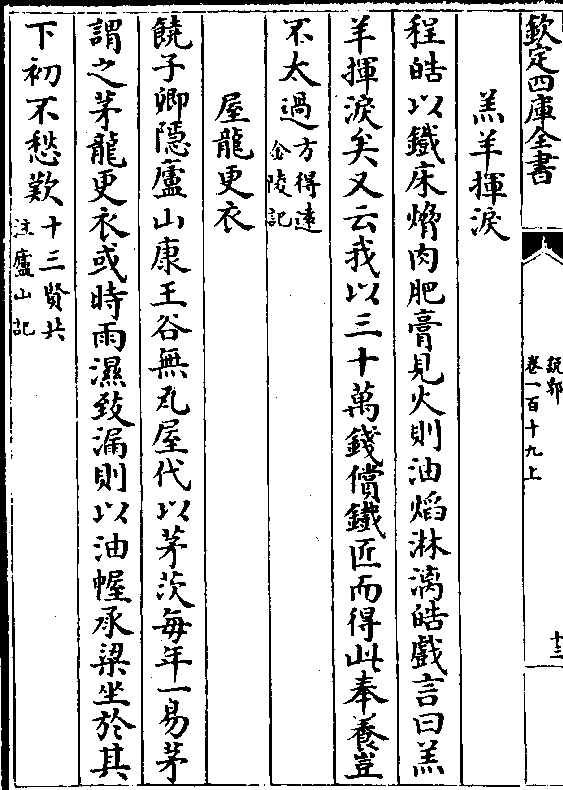 欽定四庫全書
說郛
卷一百十九上
十三
羔羊揮淚
程皓以鐵床熁肉肥膏見火則油焰淋漓皓戲言曰羔
羊揮淚矣又云我以三十萬錢償鐵匠而得此奉養豈
不太過方得逺
金陵記
屋龍更衣
饒子卿隱廬山康王谷無瓦屋代以茅茨每年一易茅
謂之茅龍更衣或時雨濕致漏則以油幄承梁坐於其
下初不愁歎十三賢共
注廬山記